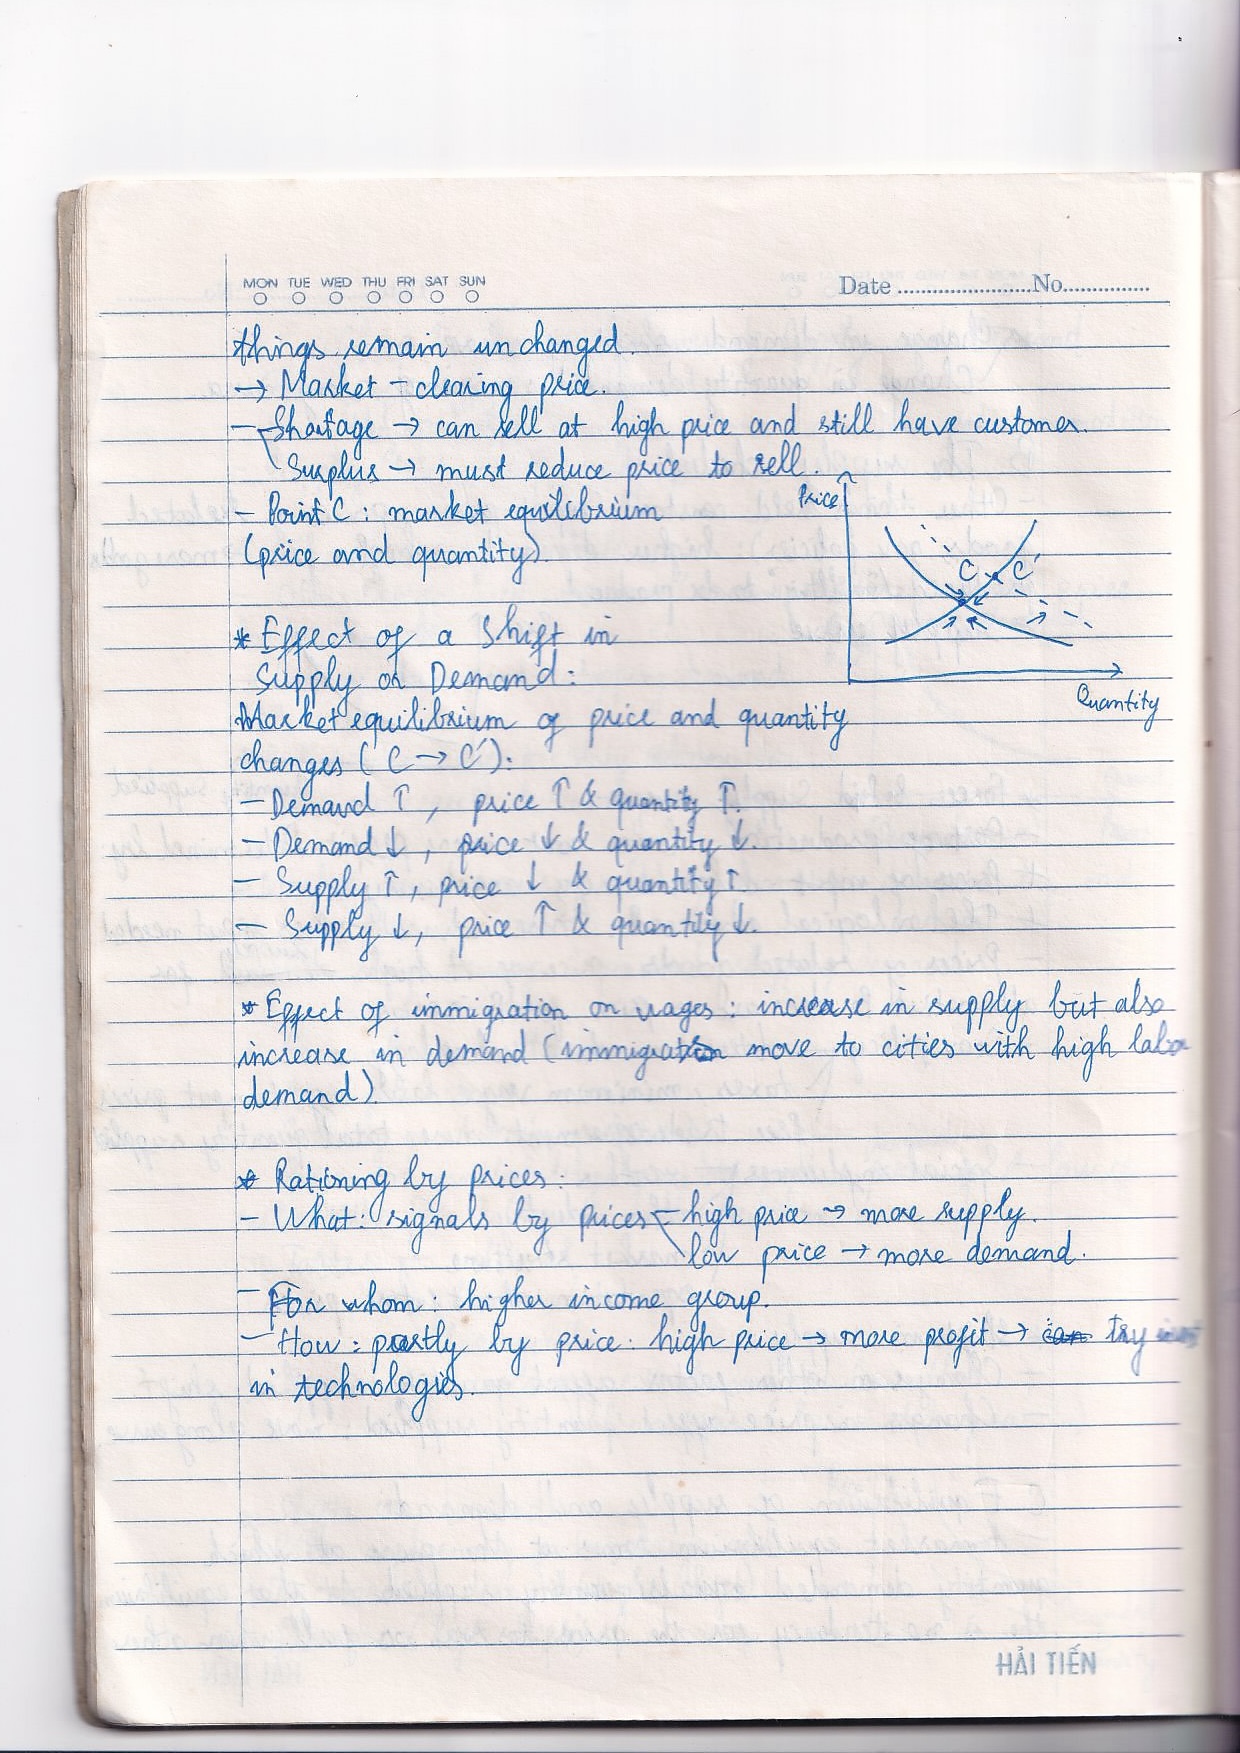 MON TUE WED THU FRI SAT SUN
Date ........................No...............
things remain unchanged.
→ Market - clearing price.
- Shortage → can sell at high price and still have customer.
Surplus → must reduce price to sell.
Price
- Point C : market equilibrium
(price and quantity).
C C'
* Effect of a Shift in
Supply or Demand :
Quantity
Market equilibrium of price and quantity
changes ( C → C').
- Demand ↑ , price ↑ & quantity ↑.
- Demand ↓ , price ↓ & quantity ↓.
- Supply ↑ , price ↓ & quantity ↑
- Supply ↓, price ↑ & quantity ↓.
* Effect of immigration on wages : increase in supply but also
increase in demand (immigration move to cities with high labor
demand).
* Rationing by prices :
- What : signals by prices high price → more supply.
low price → more demand.
- For whom : higher income group.
- How : partly by price : high price → more profit → try
in technologies.
HẢI TIẾN